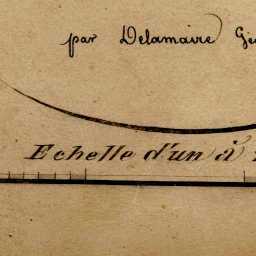 par Delamaire
Echelle d'un à